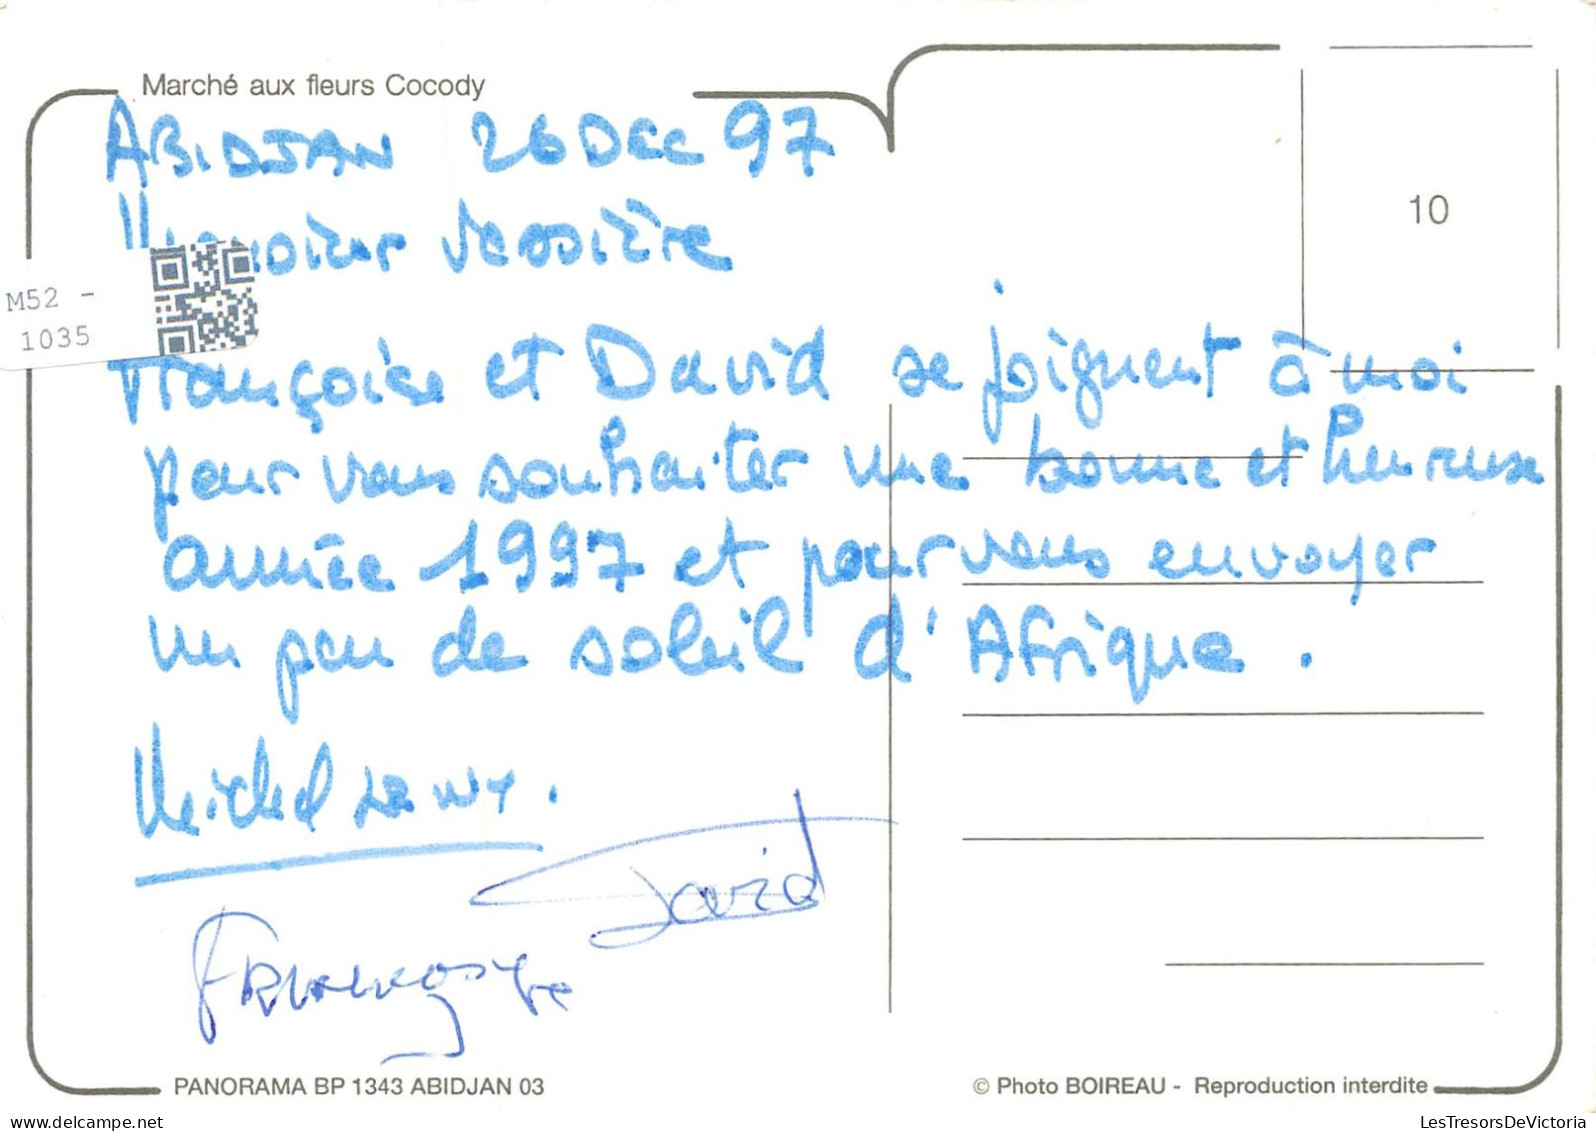 Marché aux fleurs Cocody
ABIDJAN 26 DEC 97
Monsieur Vessière
M52 -
1035
10
Françoise et David se joignent à moi
pour vous souhaiter une bonne et heureuse
année 1997 et pour vous envoyer
un peu de soleil d'Afrique.
Michel
David
Françoise
PANORAMA BP 1343 ABIDJAN 03
© Photo BOIREAU - Reproduction interdite
LesTresorsDeVictoria